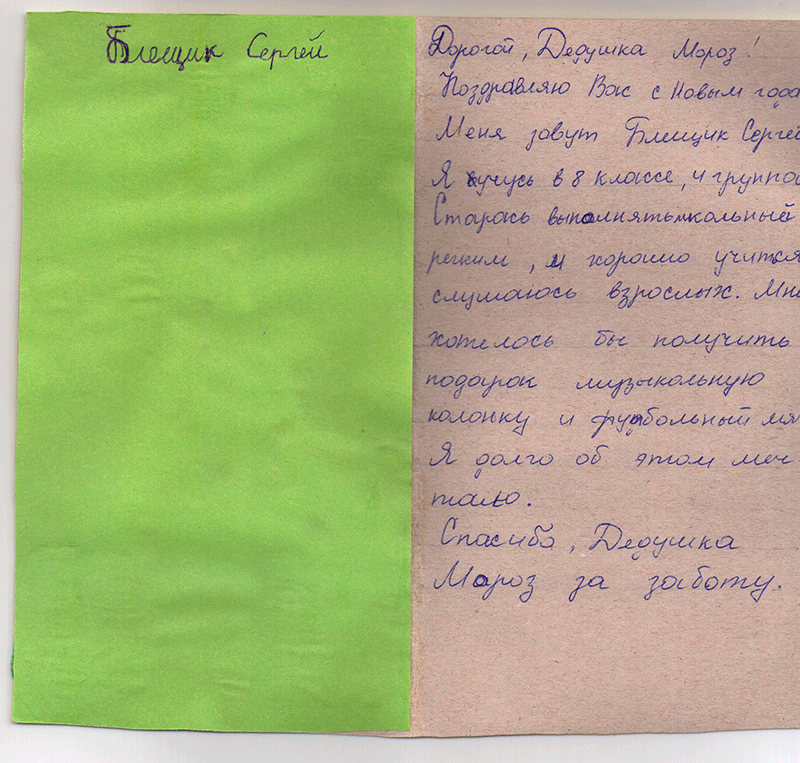 Блещик Сергей
Дорогой, Дедушка Мороз!
Поздравляю Вас с Новым года
Меня зовут Блещик Сергей
Я учусь в 8 классе, 4 группа
Стараюсь выполнять школьный
режим, и хорошо учится
слушаюсь взрослых. Мне
хотелось бы получить
подарок музыкольную
колонку и футбольный мя
Я долго об этом меч
таю.
Спасибо, Дедушка
Мороз за заботу.